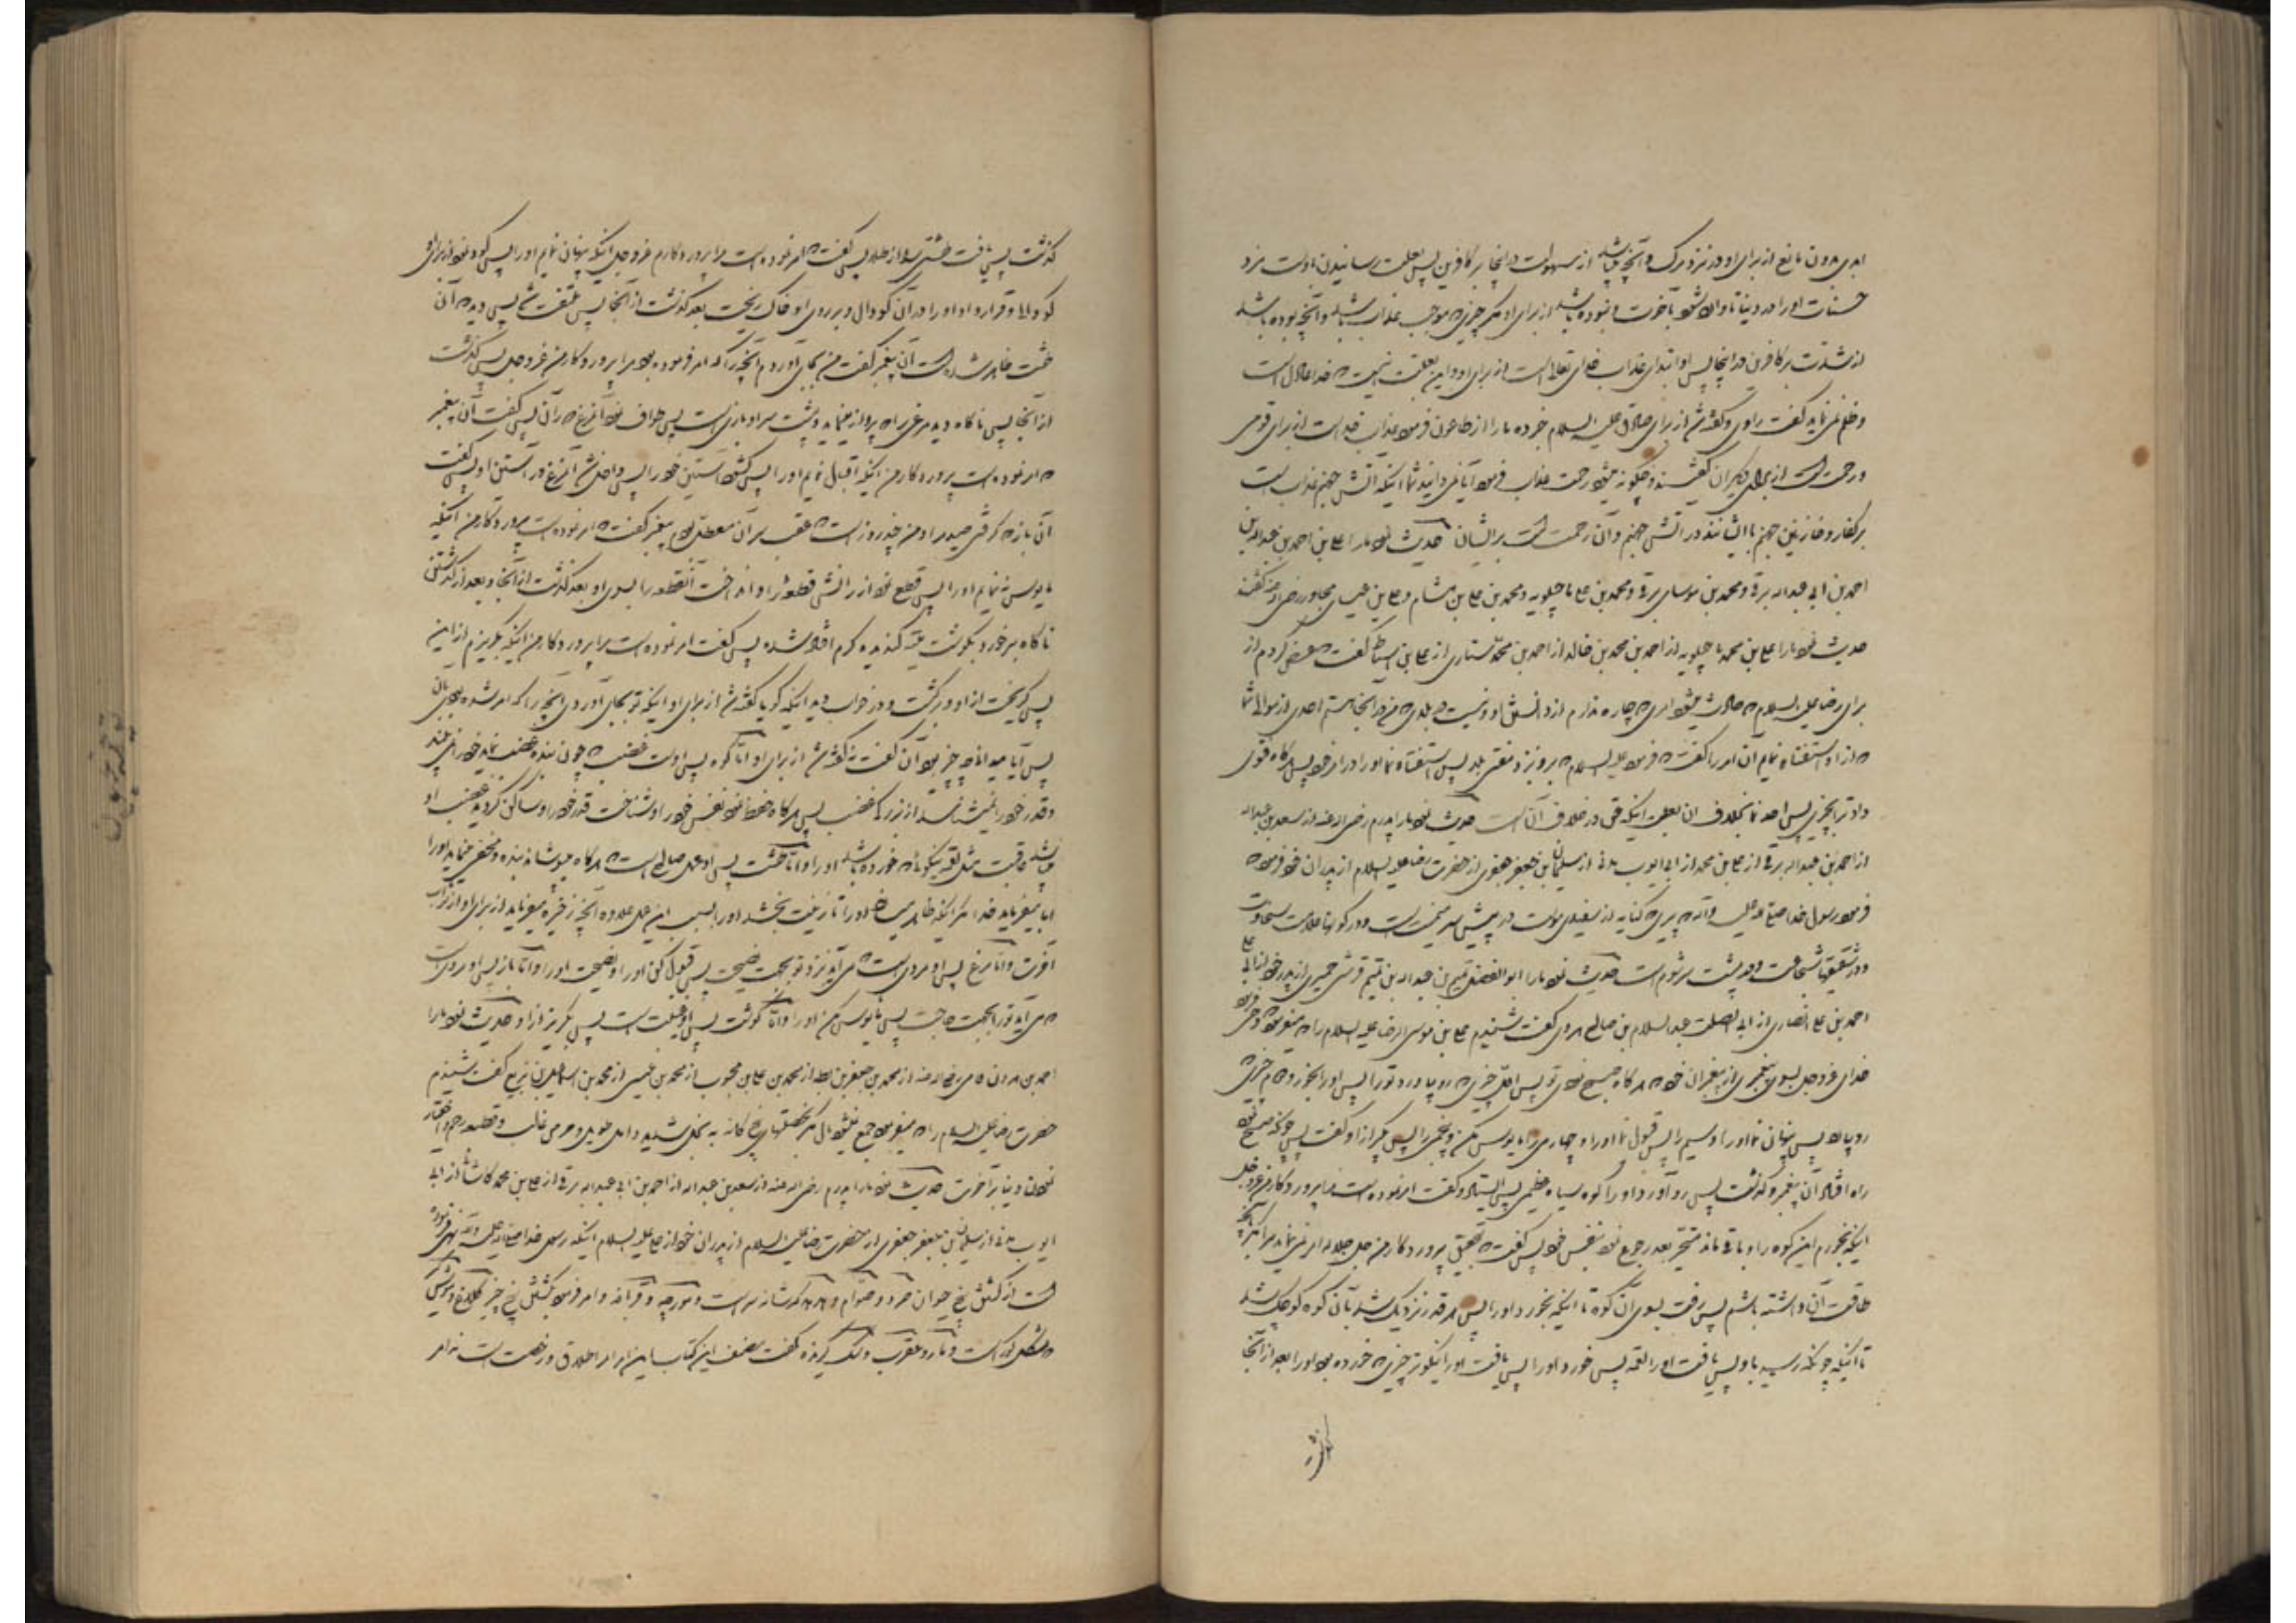 ابدی بدون مانع از برای او در نزد مرک و آنچه میباشد از سهولت در اینجا بر کافرین پس بعلت رسانیدن اوست مزد
حسنات او را در دنیا تا وارد شود بآخرت و نبوده باشد از برای او مکر چیزی که موجب عذاب باشد و آنچه بوده باشد
از شدت بر کافرین در اینجا پس او ابتدای عذاب خدای تعالی است از برای او و این بعلت اینست که خدا عادل است
و ظلم نمی نماید گفت راوی و گفته شد از برای صادق علیه السلام خبر ده ما را از طاعون فرمود عذاب خدا است از برای قومی
و رحمت است از برای دیگران گفتند و چگونه میشود رحمت عذاب فرمود آیا نمی دانید شما اینکه آتش جهنم عذاب است
بر کفار و خازنین جهنم با ایشانند در آتش جهنم و آن رحمت است بر ایشان حدیث نمود ما را علی بن احمد بن عبدالله بن
احمد بن ابی عبدالله برقی و محمد بن موسای برقی و محمد بن علی ماجیلویه و محمد بن علی بن هشام و علی بن عیسی مجاور رضی الله عنهم گفتند
حدیث نمود ما را علی بن محمد ماجیلویه از احمد بن محمد بن خالد از احمد بن محمد سیاری از علی بن اسباط گفت که عرض کردم از
برای رضا علیه السلام که حادث میشود امری که چاره ندارم از دانستن او و نیست در بلدی که من در اینجا هستم احدی از موالی شما
که از او استفتاء نمایم آن امر را گفت که فرمود علیه السلام برو نزد مفتی بلد پس استفتاء نما او را در امر خود پس هرگاه فتوی
داد ترا بچیزی پس اخذ نما بخلاف آن بعلت اینکه حق در خلاف آنست حدیث نمود ما را پدرم رضی الله عنه از سعد بن عبدالله
از احمد بن عبدالله برقی از علی بن محمد از ابی ایوب مدنی از سلیمان بن جعفر جعفری از حضرت رضا علیه السلام از پدران خود فرمود که
فرمود رسول خدا صلی الله علیه وآله که پیری کنایه از سفیدی موست در پیش سر میمنت است و در گونها علامت سخاوت
و در شقیقها شجاعت و در پشت سر شوم است حدیث نمود ما را ابو الفضل تمیم بن عبدالله بن تمیم قرشی حمیری از پدر خود از ابی علی
احمد بن علی انصاری از ابی الصلت عبد السلام بن صالح هروی گفت شنیدم علی بن موسی الرضا علیه السلام را که میفرمود وحی فرمود
خدای عزوجل بسوی پیغمبری از پیغمبران خود که هرگاه صبح نمودی تو پس اول چیزی که رو بیاورد تو را پس او را بخور و دویم چیزی که
رو بیاورد پس پنهان نما او را و سیم را پس قبول نما او را و چهارمی را مایوس مکن و پنجمی را پس بگریز از او گفت پس چونکه صبح نمود
راه افتاد آن پیغمبر و گذشت پس رو آورد او را کوه سیاه عظیمی پس ایستاد و گفت امر نموده است مرا پروردگار من عزوجل
اینکه بخورم این کوه را و باقی ماند متحیر بعد رجوع نمود بنفس خود پس گفت که بتحقیق پروردگار من جل جلاله امر نمی نماید مرا مگر بآنچه
طاقت آن داشته باشم پس رفت بسوی آن کوه تا اینکه بخورد او را پس هر قدر نزدیک شد بآن کوه کوچک شد
تا اینکه چونکه رسید باو پس یافت او را لقمه پس خورد او را پس یافت او را نیکوتر چیزی که خورده بود او را بعد از آنجا
گذشت
گذشت پس یافت طشتی را از طلا پس گفت که امر نموده است مرا پروردگارم عزوجل اینکه پنهان نمایم او را پس گود نمود از برای او
گودالی و قرار داد او را در آن گودال و بر روی او خاک ریخت بعد گذشت از آنجا پس ملتفت شد پس دید که آن
طشت ظاهر شده است آن پیغمبر گفت من بجای آوردم آنچه را که امر فرموده بود مرا پروردگار من عزوجل پس گذشت
از آنجا پس ناگاه دید مرغی را که پرواز مینماید و پشت سر او بازی است پس طواف نمود آن مرغ دور آن پس گفت آن پیغمبر
که امر نموده است پروردگار من اینکه اقبال نمایم او را پس گشود آستین خود را پس داخل شد آن مرغ در آستین او پس گفت
آن باز که گرفتی صید مرا و من چند روز است که عقب سر آن معطل بودم پیغمبر گفت که امر نموده است پروردگار من اینکه
مایوس ننمایم او را پس قطع نمود از رانش قطعه را و انداخت آن قطعه را بسوی او بعد گذشت از آنجا و بعد از گذشتن
ناگاه برخورد بگوشت میته گندیده کرم افتاده شده پس گفت امر نموده است مرا پروردگار من اینکه بگریزم از این
پس گریخت از او و برگشت و در خواب دید اینکه گویا گفته شد از برای او اینکه تو بجای آوردی آنچه را که امر شده بودی بآن
پس آیا میدانی که چه چیز بود آن گفت نه گفته شد از برای او اما کوه پس اوست غضب که چون بنده غضب نماید خود را نمی بیند
و قدر خود را نمیشناسد از بزرگی غضب پس هرگاه حفظ نمود نفس خود را و شناخت قدر خود را و ساکن گردید غضب او
میباشد عاقبت مثل لقمه نیکو که خورده باشد او را و اما طشت پس او عمل صالح است که هرگاه بپوشاند بنده و مخفی نماید او را
ابا میفرماید خدا مگر اینکه ظاهر میسازد او را تا زینت بخشد او را بسبب این عمل علاوه آنچه ذخیره میفرماید از برای او از ثواب
آخرت و اما مرغ پس او مردی است که می آید نزد تو بجهت نصیحت پس قبول کن او را و نصیحت او را و اما باز پس او مردی است
که می آید تو را بجهت حاجت پس مایوس مکن او را و اما گوشت پس او غیبت است پس بگریز از او حدیث نمود ما را
احمد بن هرون فامی رضی الله عنه از محمد بن جعفر بن بطه از محمد بن علی بن محبوب از محمد بن عیسی از محمد بن اسمعیل بن بزیع گفت شنیدم
حضرت رضا علیه السلام را که میفرمود جمع نمیشود مال مگر بخصلتهای پنج گانه به بخل شدید و امل طویل و حرص غالب و قطیعه رحم و اختیار
نمودن دنیا بر آخرت حدیث نمود ما را پدرم رضی الله عنه از سعد بن عبدالله از احمد بن ابی عبدالله برقی از علی بن محمد کاشانی از ابی
ایوب مدنی از سلیمان بن جعفر جعفری از حضرت رضا علیه السلام از پدران خود از علی علیه السلام اینکه رسول خدا صلی الله علیه وآله نهی فرموده
است از کشتن پنج حیوان صرد و صوام و هدهد که شانه سر است و مورچه و قرباغه و امر فرمود بکشتن پنج چیز کلاغ و
و مار و عقرب و سک گزنده گفت مصنف این کتاب این امر امر اطلاق و رخصت است نه امر